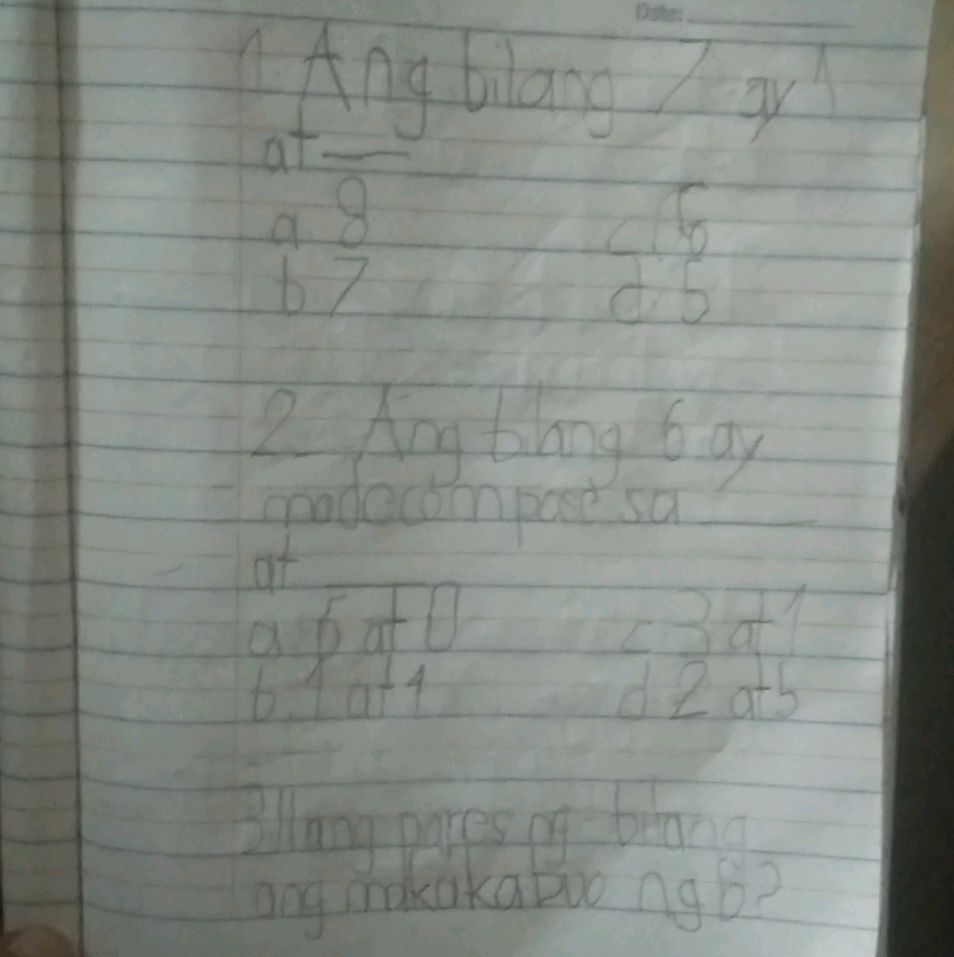 Date:
1 Ang bilang 7 ay 1
at __
a. 8 c. 6
b 7 d. 5
2. Ang bilang 6 ay
madecompose sa ____
at ____
a. 6 at 0 c 3 at 1
b. 1 at 4 d. 2 at 5
3. Ilang pares ng bilang
ang makakabuo ng 6?